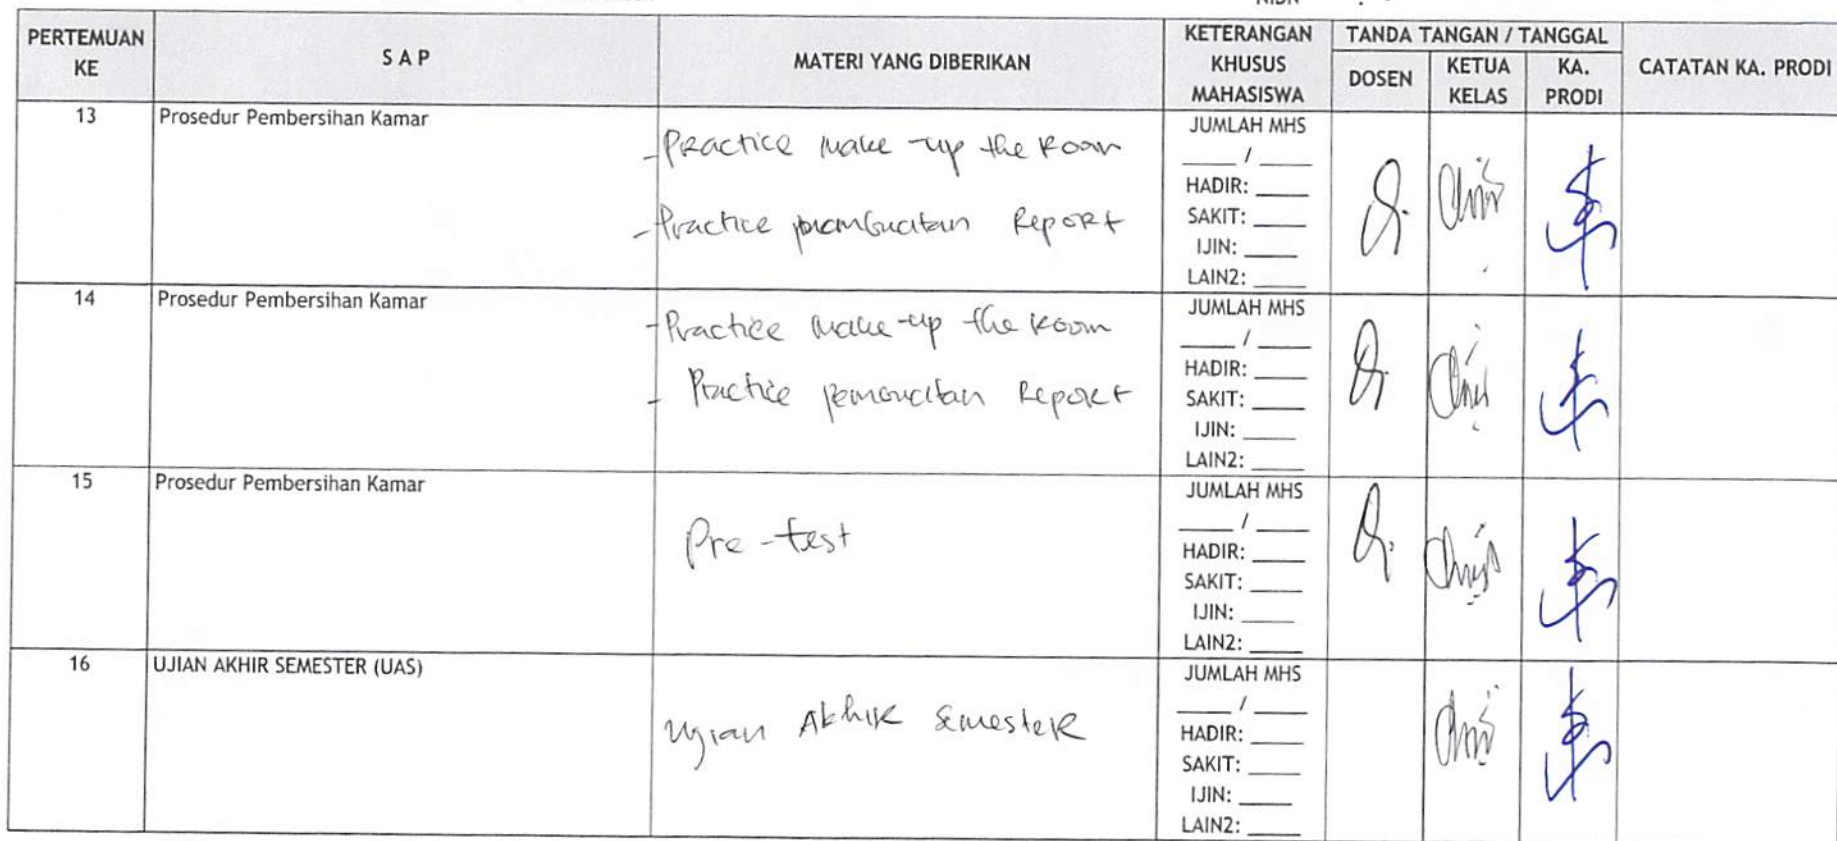 NIDN :
PERTEMUAN KE
S A P
MATERI YANG DIBERIKAN
KETERANGAN KHUSUS MAHASISWA
TANDA TANGAN / TANGGAL
DOSEN
KETUA KELAS
KA. PRODI
CATATAN KA. PRODI
13
Prosedur Pembersihan Kamar
- Practice make-up the Room
- Practice pembuatan Report
JUMLAH MHS
____ / ____
HADIR: ____
SAKIT: ____
IJIN: ____
LAIN2: ____
14
Prosedur Pembersihan Kamar
- Practice make-up the Room
- Practice pembuatan Report
JUMLAH MHS
____ / ____
HADIR: ____
SAKIT: ____
IJIN: ____
LAIN2: ____
15
Prosedur Pembersihan Kamar
Pre-test
JUMLAH MHS
____ / ____
HADIR: ____
SAKIT: ____
IJIN: ____
LAIN2: ____
16
UJIAN AKHIR SEMESTER (UAS)
Ujian Akhir Semester
JUMLAH MHS
____ / ____
HADIR: ____
SAKIT: ____
IJIN: ____
LAIN2: ____